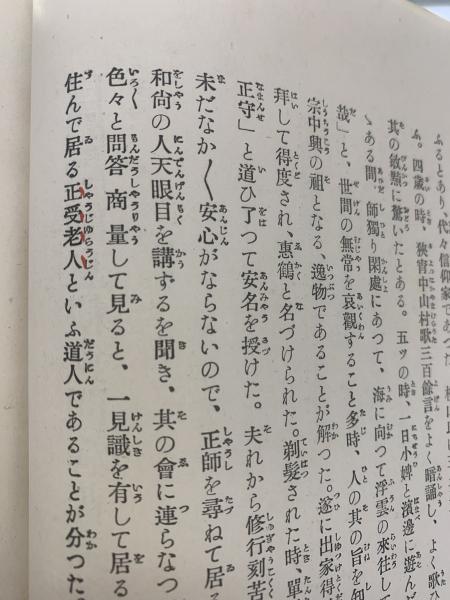 ふるとあり、代々信仰家であつた
ふ。四歳の時、狹霄中山村歌三百餘言をよく暗誦し、よく歌ひ
其の敏黠に驚いたとある。五ッの時、一日小婢と濱邊に遊んだ
ゝある間、師獨り閑處にあつて、海に向つて浮雲の來往して
哉」と、世間の無常を哀觀すること多時、人の其の旨を知
宗中興の祖となる、逸物であることが解つた。遂に出家得
拜して得度され、惠鶴と名づけられた。剃髮された時、單
正守」と道ひ了つて安名を授けた。夫れから修行刻苦
未だなか〳〵安心がならないので、正師を尋ねて居
和尙の人天眼目を講ずるを聞き、其の會に連らなつ
色々と問答商量して見ると、一見識を有して居る
住んで居る正受老人といふ道人であることが分つた